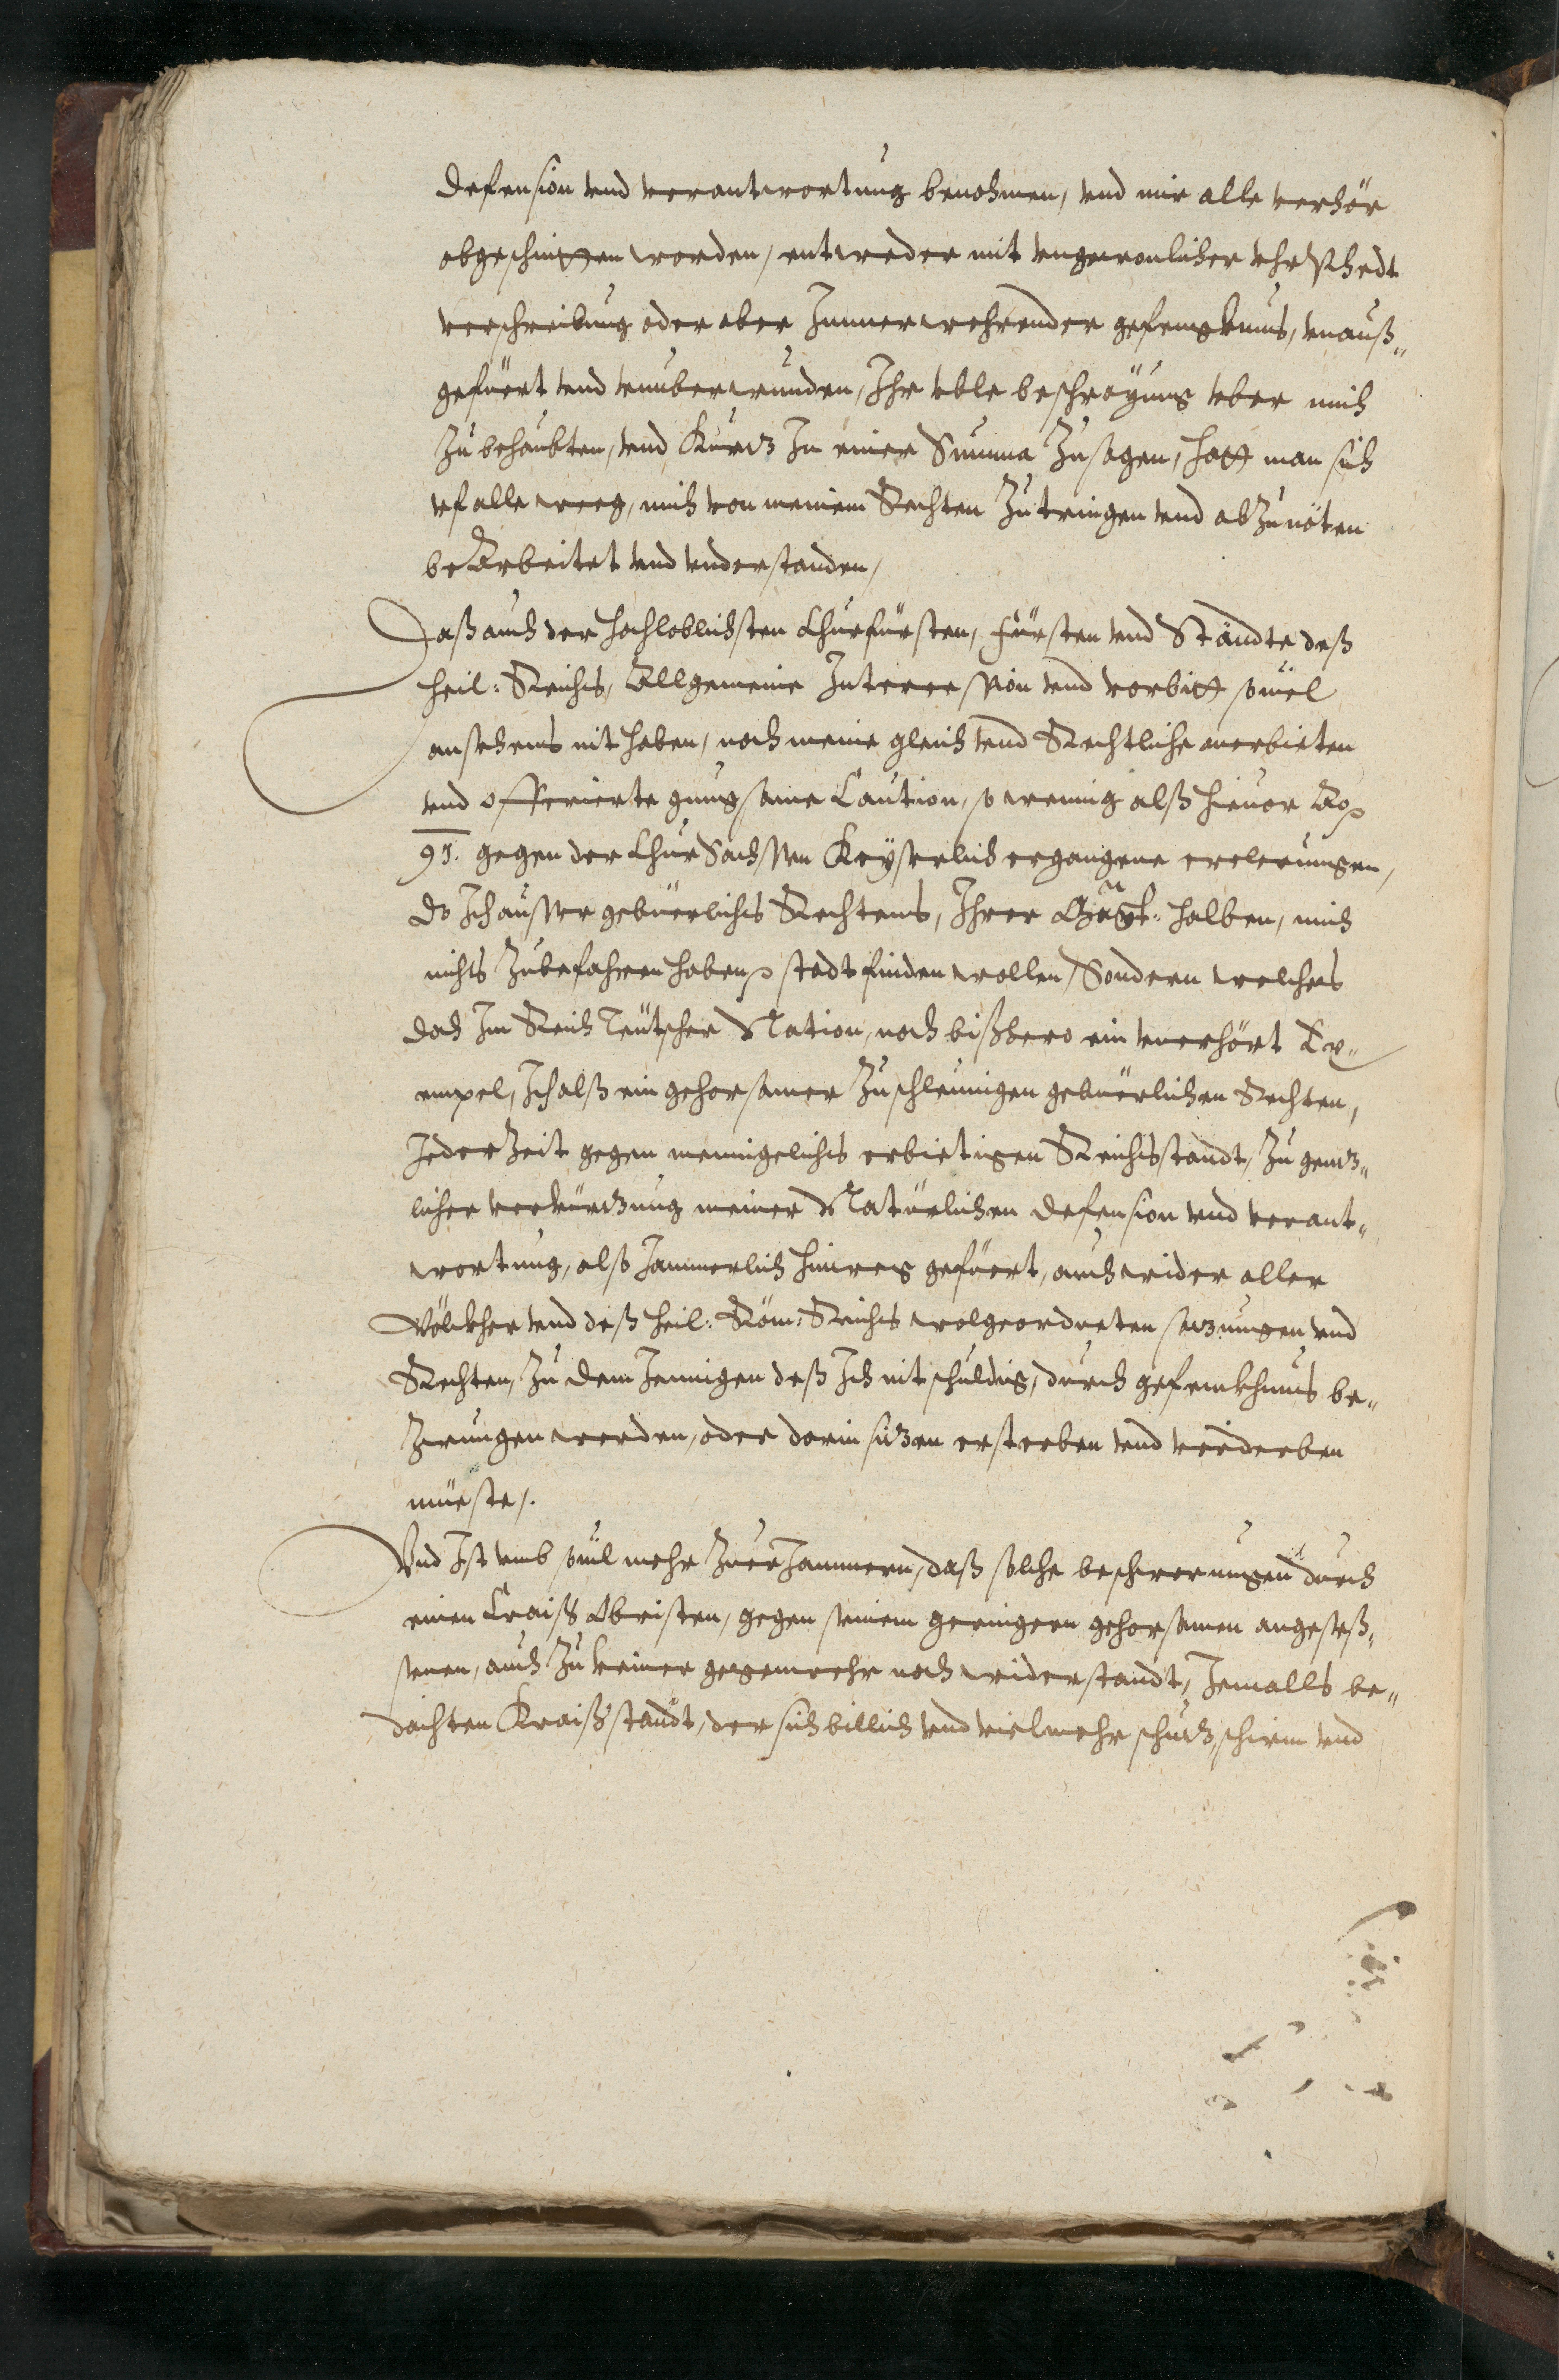 Defension vnd verantwortung benohmen, vnd mir alle verhör
abgeschnitten worden, entweder mit vngewonlicher vhrphedt
verschreibung oder aber Immerwehrender gefengknus, vnauß„
gefüert vnd vnuberwunden, Ihr vble beschreyung vber mich
Zu behaubten, vnd Kurtz In einer Summa Zusagen, hatt man sich
vf alle weeg, mich von meinem Rechten Zutringen vnd abZunöten
beArbeitet vnd vnderstanden,
Daß auch der hochloblichsten Churfürsten, Fürsten vnd Ständte deß
heil: Reichs, Allgemeine Intercession vnd vorbitt souil
ansehens nit haben, noch meine gleich vnd Rechtliche anerbieten
vnd offerierte gnugsame Caution, so wenig alß hieuor Ao
91. gegen der Chur Sachssen Keyserlich ergangene erclerungen,
do Ich ausser gebüerlichs Rechtens, Ihrer halben, mich
nichts Zubefahren haben, stadt finden wollen, Sondern welches
doch Im Reich Teutscher Nation, noch bißhero ein vnerhört Ex„
empel, Ich alß ein gehorsamer Zu schleunigen gebüerlichen Rechten,
JederZeit gegen menngelichs erbietigen Reichsstandt, Zu gentz„
licher verkürtzung meiner Natürlichen Defension vnd verant„
wortung, also Jammerlich hinweg gefüert, auch wider aller
Völckher vnd deß heil: Röm: Reichs wolgeordneten satzungen vnd
Rechten, Zu dem Jennigen deß Ich nit schuldig, durch gefenckhnus be„
Zwungen werden, oder darin sitzen ersterben vnd verderben
müeste.
Vnd Ist vmb souil mehr ZuerJammern, daß solche beschwerungen durch
einen Craiß Obristen, gegen seinem geringern gehorsamen angeseß„
senen, auch Zu keiner gegenwehr noch widerstandt, Jemalls be„
dachten Kraißstandt, der sich billich vnd vielmehr schutz, schirm vnd